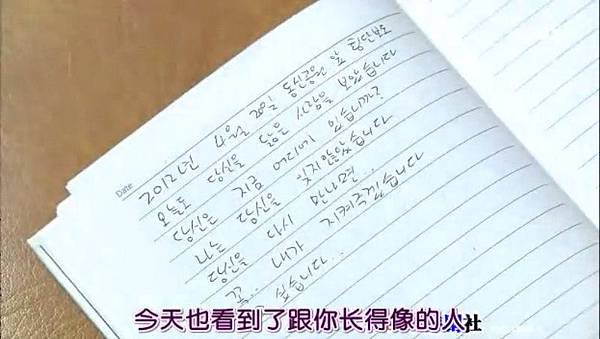 Date
2012년 4월 20일 동신공원 앞 횡단보도
오늘도 당신을 닮은 사람을 보았습니다
당신은 지금 어디에 있습니까?
나는 당신을 잊지않았습니다
당신을 다시 만나면...
꼭.. 내가 지켜주겠습니다
보고 싶습니다..
今天也看到了跟你长得像的人
社